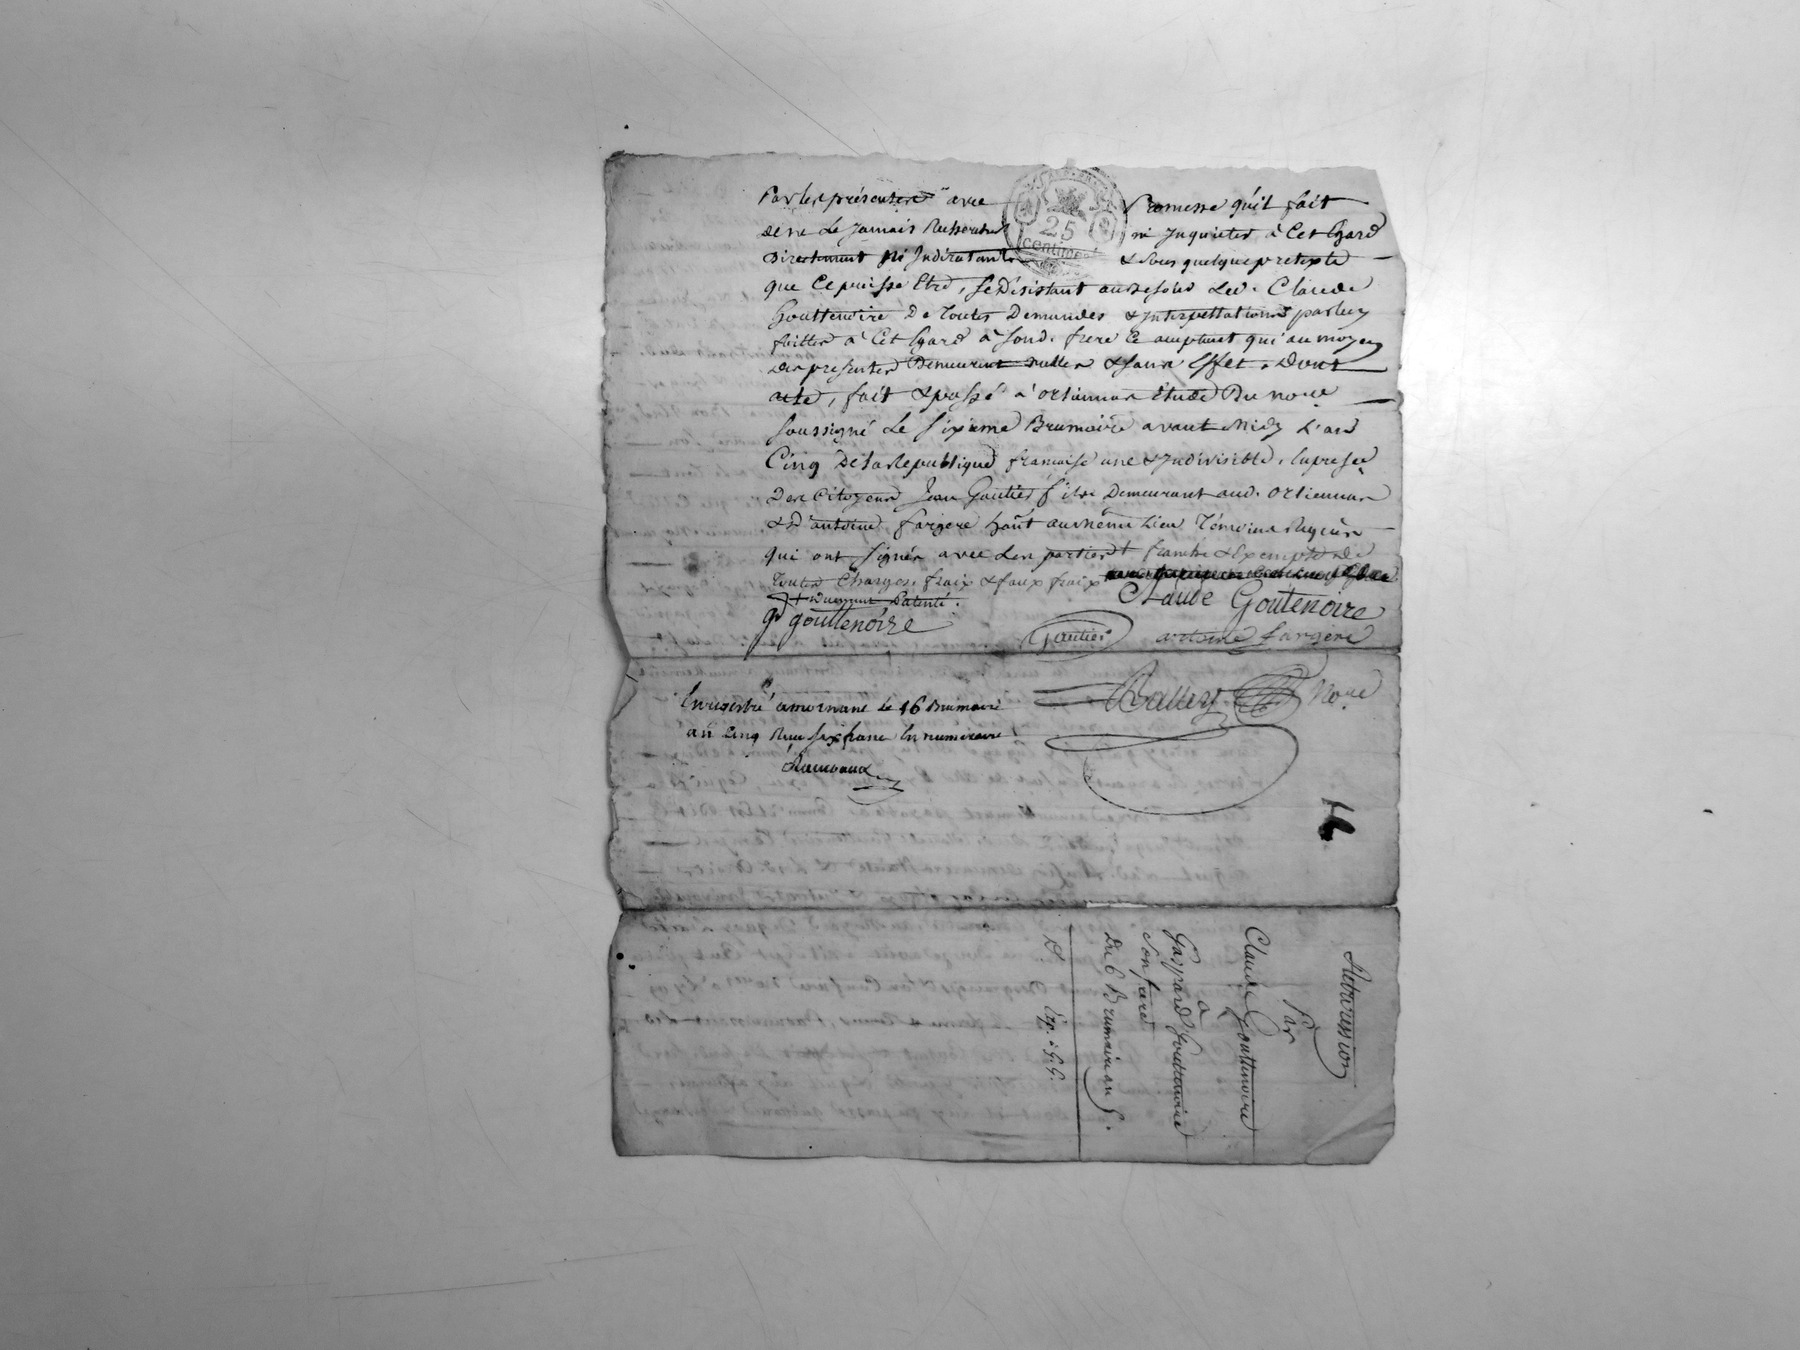 Par les présentes avec promesse qu'il fait
de ne le jamais rechercher ni inquieter à cet egard
directement ni indirectant & sous quelque pretexte
que ce puisse etre, se désistant au desir led. Claude
Gouttenoire de toutes demandes & interpellations par luy
faittes à cet egard à sond. frere le acceptant qui au moyen
des presentes demeurent nulles & sans effet, dont
acte, fait & passé à étude du no.re
soussigné le sixieme Brumaire avant midy l'an
Cinq de la Republique francaise une & indivisible, en presce
des citoyens Jean Gautier fils demeurant aud.
& d'antoine fargere hant au meme lieu témoins requis
qui ont signés avec les parties + franche & exempte de
toutes charges, fraix & faux fraix
+ Patenté.
25
centimes
Claude Goutenoire
gd goutenoire
Gautier
antoine fargere
No.re
Enregistré le 16 Brumaire
an cinq Reçu six franc en numeraire
Retrocession
Par
Claude Gouttenoire
a
Gaspard Gouttenoire
son frere
Du 6 Brumaire an 5.
Exp. à G. G.